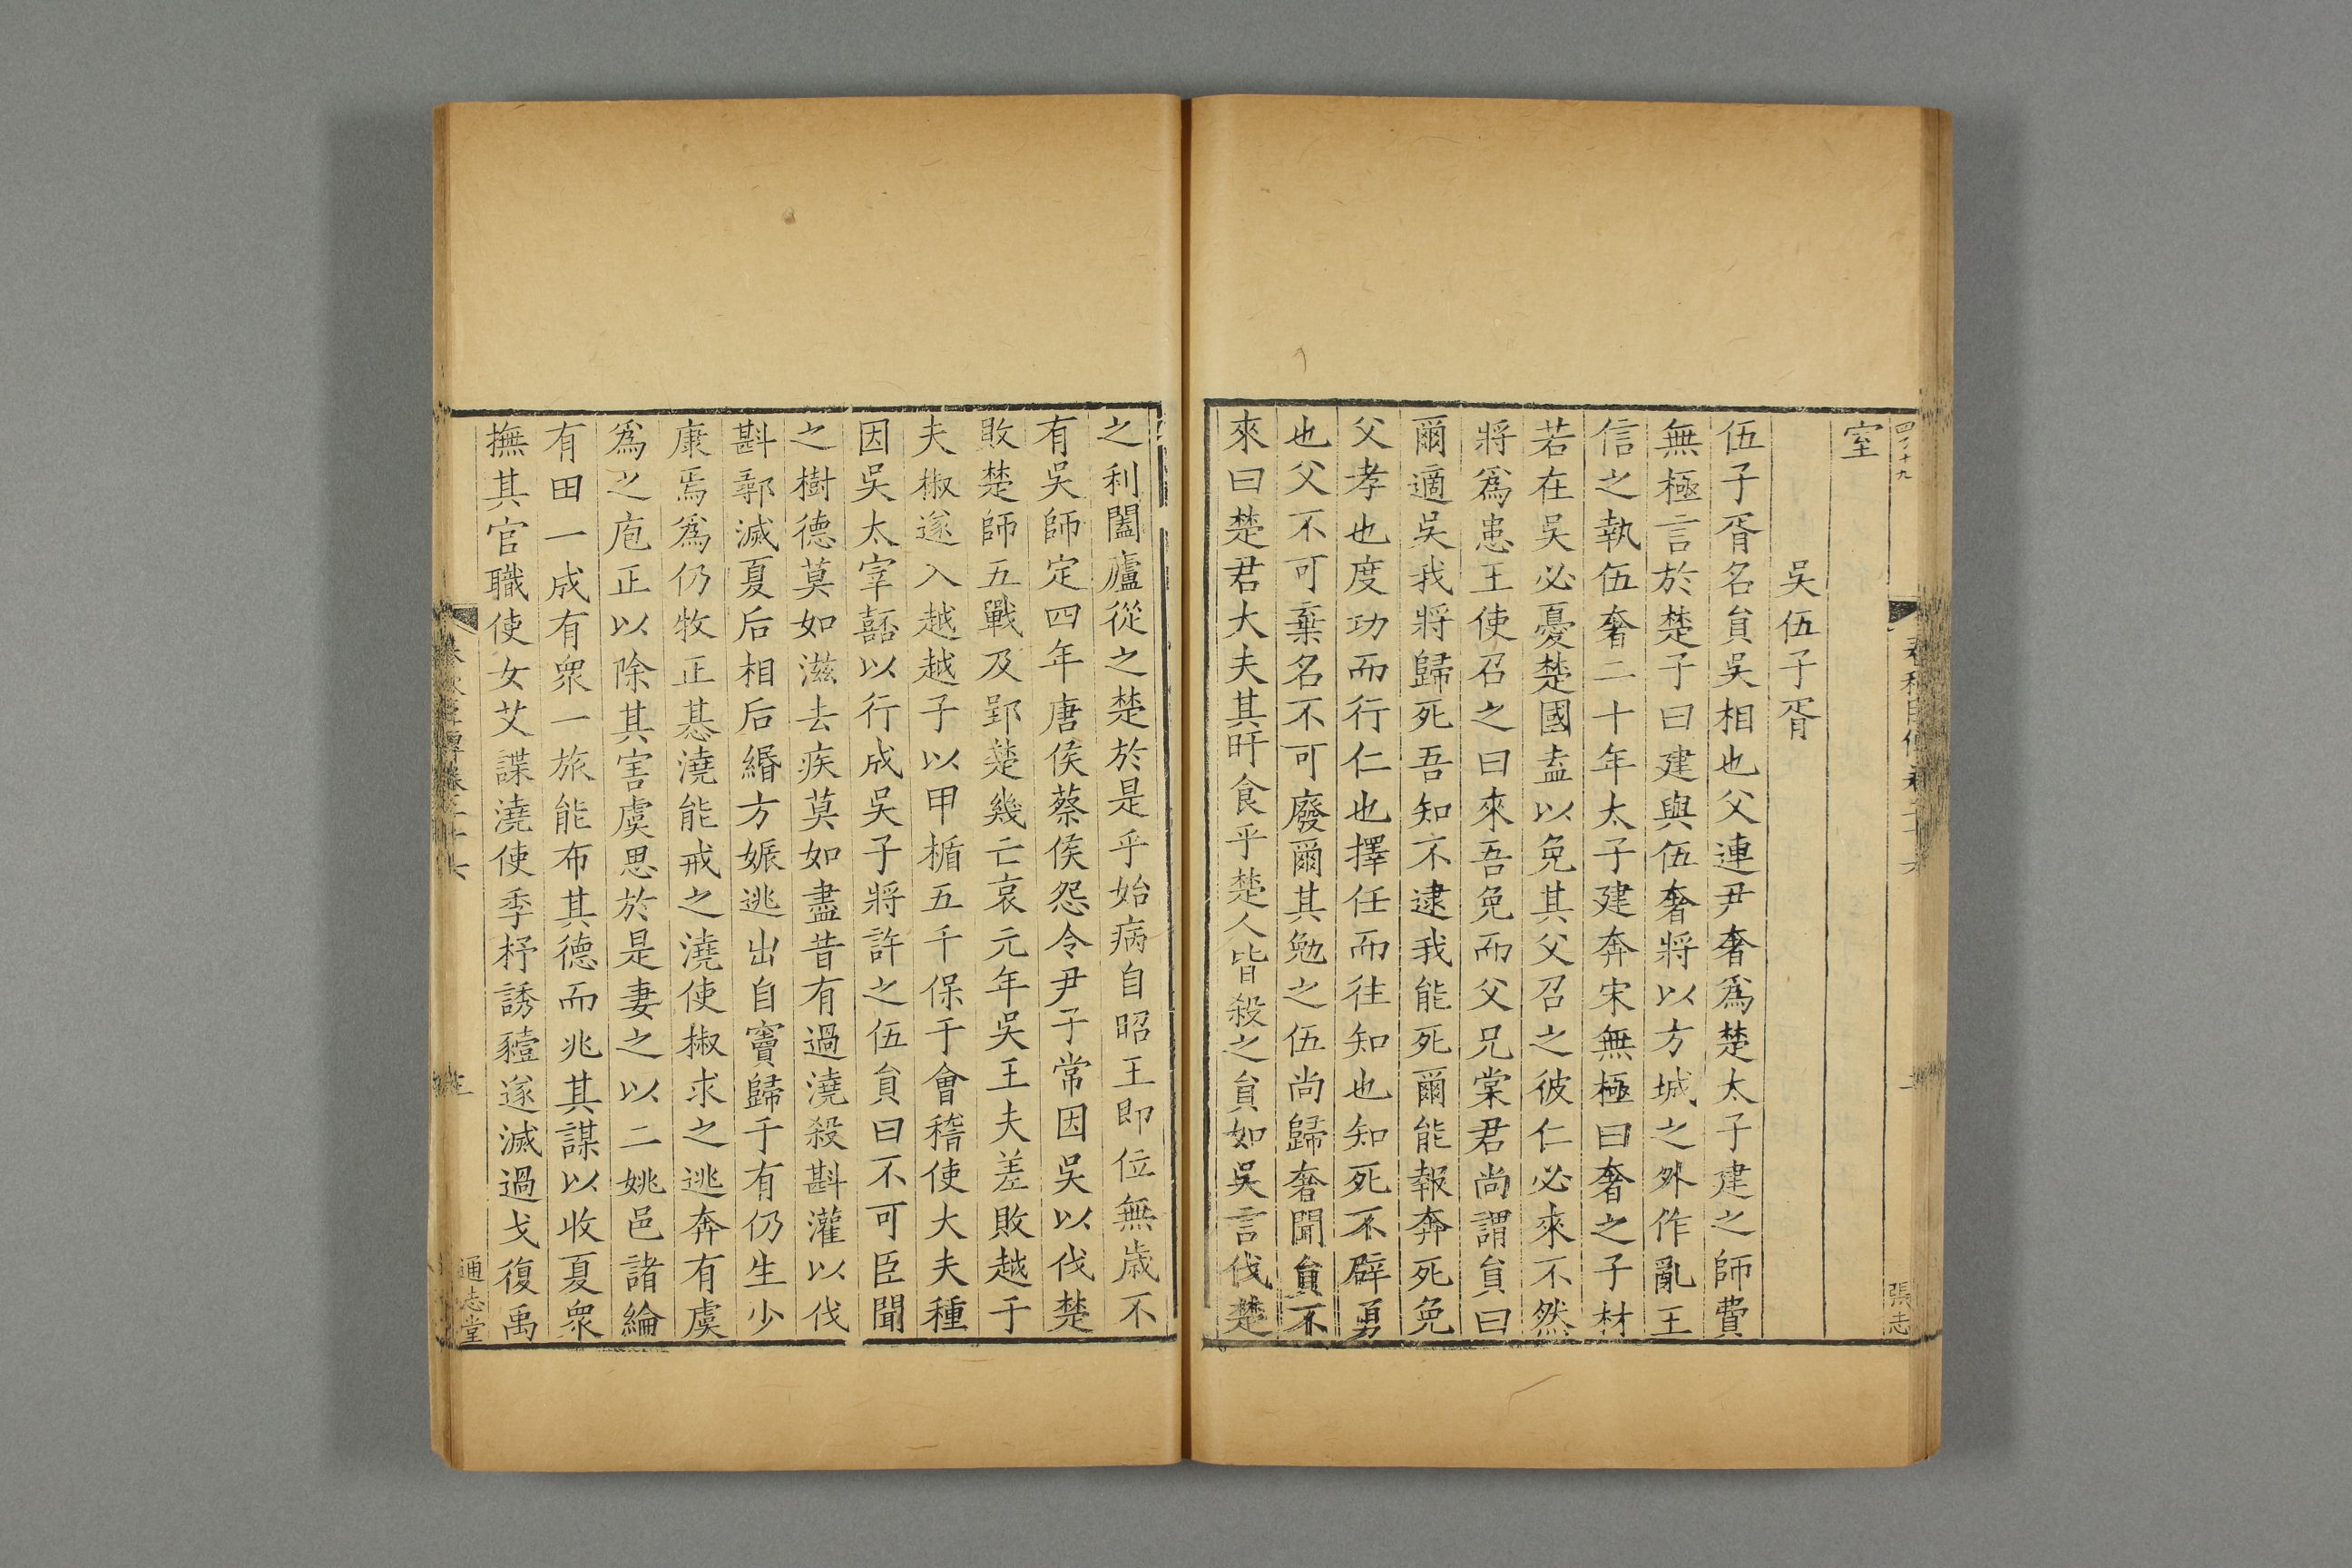 室
吳伍子胥
伍子胥名貟吳相也父連尹奢爲楚太子建之師費
無極言於楚子曰建與伍奢將以方城之外作亂王
信之執伍奢二十年太子建奔宋無極曰奢之子材
若在吳必憂楚國盍以免其父召之彼仁必來不然
將爲患王使召之曰來吾免而父兄棠君尚謂貟曰
爾適吳我將歸死吾知不逮我能死爾能報奔死免
父孝也度功而行仁也擇任而往知也知死不辟勇
也父不可棄名不可廢爾其勉之伍尚歸奢聞貟不
來曰楚君大夫其旰食乎楚人皆殺之貟如吳言伐楚
之利闔廬從之楚於是乎始病自昭王即位無歲不
有吳師定四年唐侯蔡侯怨令尹子常因吳以伐楚
敗楚師五戰及郢楚幾亡哀元年吳王夫差敗越于
夫椒遂入越越子以甲楯五千保于會稽使大夫種
因吳太宰嚭以行成吳子將許之伍貟曰不可臣聞
之樹德莫如滋去疾莫如盡昔有過澆殺斟灌以伐
斟鄩滅夏后相后緡方娠逃出自竇歸于有仍生少
康焉爲仍牧正惎澆能戒之澆使椒求之逃奔有虞
爲之庖正以除其害虞思於是妻之以二姚邑諸綸
有田一成有眾一旅能布其德而兆其謀以收夏眾
撫其官職使女艾諜澆使季杼誘豷遂滅過戈復禹
通志堂